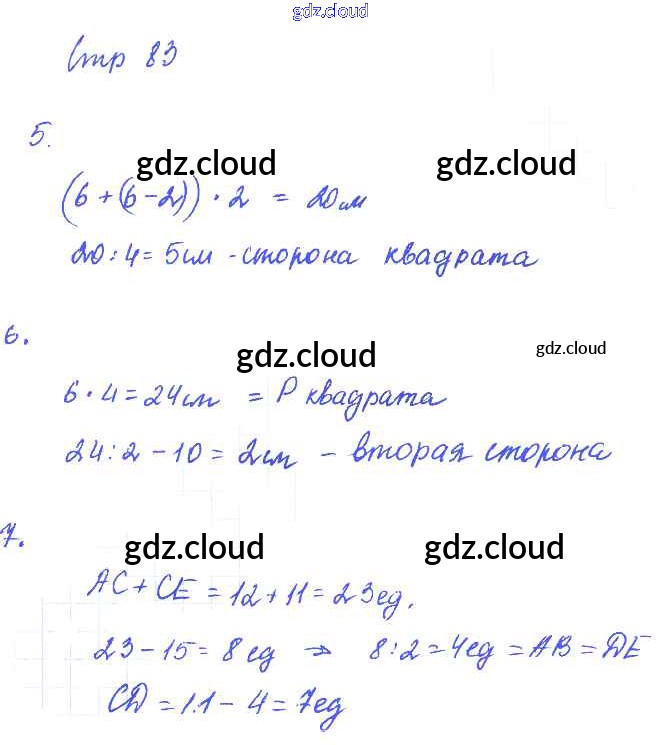 gdz.cloud
Стр 83
5.
gdz.cloud gdz.cloud
(6 + (6 - 2)) · 2 = 20 см
20 : 4 = 5 см - сторона квадрата
6.
gdz.cloud gdz.cloud
6 · 4 = 24 см = P квадрата
24 : 2 - 10 = 2 см - вторая сторона
7.
gdz.cloud gdz.cloud
AC + CE = 12 + 11 = 23 ед.
23 - 15 = 8 ед ⇒ 8 : 2 = 4 ед = AB = DE
CD = 11 - 4 = 7 ед